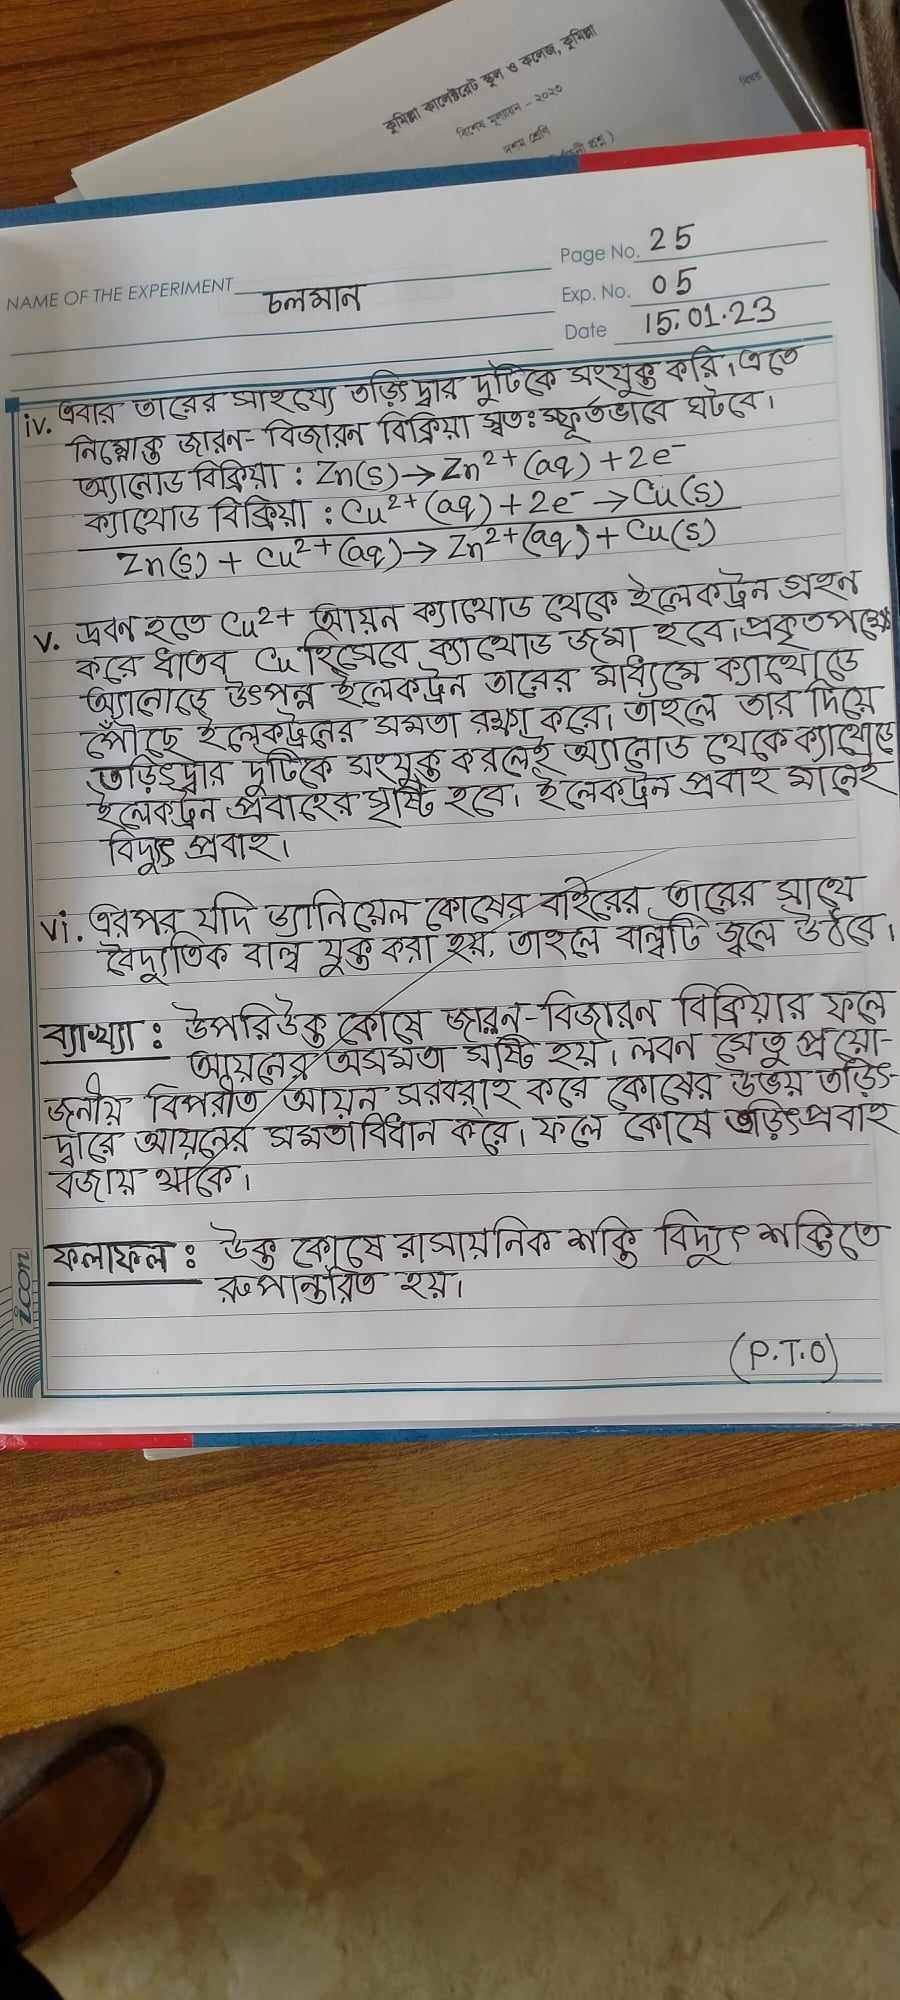 কুমিল্লা কালেক্টরেট স্কুল ও কলেজ, কুমিল্লা
বিশেষ মূল্যায়ন - ২০২৩
দশম শ্রেণি
প্রশ্ন)
বিষয়
Page No. 25
NAME OF THE EXPERIMENT চলমান
Exp. No. 05
Date 15.01.23
iv. এবার তারের সাহায্যে তড়িৎ দ্বার দুটিকে সংযুক্ত করি। এতে
নিম্নোক্ত জারন-বিজারন বিক্রিয়া স্বতঃস্ফূর্তভাবে ঘটবে।
অ্যানোড বিক্রিয়া : Zn(s) → Zn²⁺(aq) + 2e⁻
ক্যাথোড বিক্রিয়া : Cu²⁺(aq) + 2e⁻ → Cu(s)
Zn(s) + Cu²⁺(aq) → Zn²⁺(aq) + Cu(s)
v. দ্রবন হতে Cu²⁺ আয়ন ক্যাথোড থেকে ইলেকট্রন গ্রহন
করে ধাতব Cu হিসেবে ক্যাথোড জমা হবে। প্রকৃতপক্ষে
অ্যানোডে উৎপন্ন ইলেকট্রন তারের মাধ্যমে ক্যাথোডে
পৌঁছে ইলেকট্রনের সমতা রক্ষা করে। তাহলে তার দিয়ে
তড়িৎদ্বার দুটিকে সংযুক্ত করলেই অ্যানোড থেকে ক্যাথোডে
ইলেকট্রন প্রবাহের সৃষ্টি হবে। ইলেকট্রন প্রবাহ মানেই
বিদ্যুৎ প্রবাহ।
vi. এরপর যদি ড্যানিয়েল কোষের বাইরের তারের সাথে
বৈদ্যুতিক বাল্ব যুক্ত করা হয়, তাহলে বাল্বটি জ্বলে উঠবে।
ব্যাখ্যা : উপরিউক্ত কোষে জারন-বিজারন বিক্রিয়ার ফলে
আয়নের অসমতা সৃষ্টি হয়। লবন সেতু প্রয়ো-
জনীয় বিপরীত আয়ন সরবরাহ করে কোষের উভয় তড়িৎ-
দ্বারে আয়নের সমতাবিধান করে। ফলে কোষে তড়িৎপ্রবাহ
বজায় থাকে।
ফলাফল : উক্ত কোষে রাসায়নিক শক্তি বিদ্যুৎ শক্তিতে
রুপান্তরিত হয়।
(P.T.O)
icon